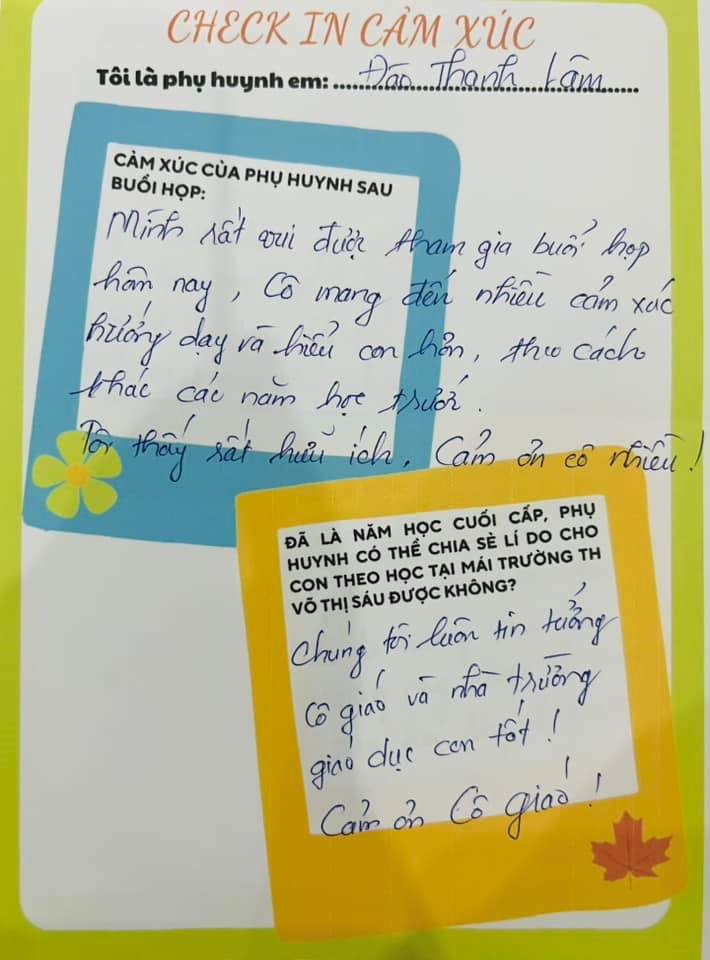 CHECK IN CẢM XÚC
Tôi là phụ huynh em: Đào Thanh Lâm
CẢM XÚC CỦA PHỤ HUYNH SAU
BUỔI HỌP:
Mình rất vui được tham gia buổi họp
hôm nay, Cô mang đến nhiều cảm xúc
hướng dạy và hiểu con hơn, theo cách
khác các năm học trước.
Tôi thấy rất hữu ích, Cảm ơn cô nhiều!
ĐÃ LÀ NĂM HỌC CUỐI CẤP, PHỤ
HUYNH CÓ THỂ CHIA SẺ LÍ DO CHO
CON THEO HỌC TẠI MÁI TRƯỜNG TH
VÕ THỊ SÁU ĐƯỢC KHÔNG?
Chúng tôi luôn tin tưởng
cô giáo và nhà trường
giáo dục con tốt!
Cảm ơn Cô giáo!